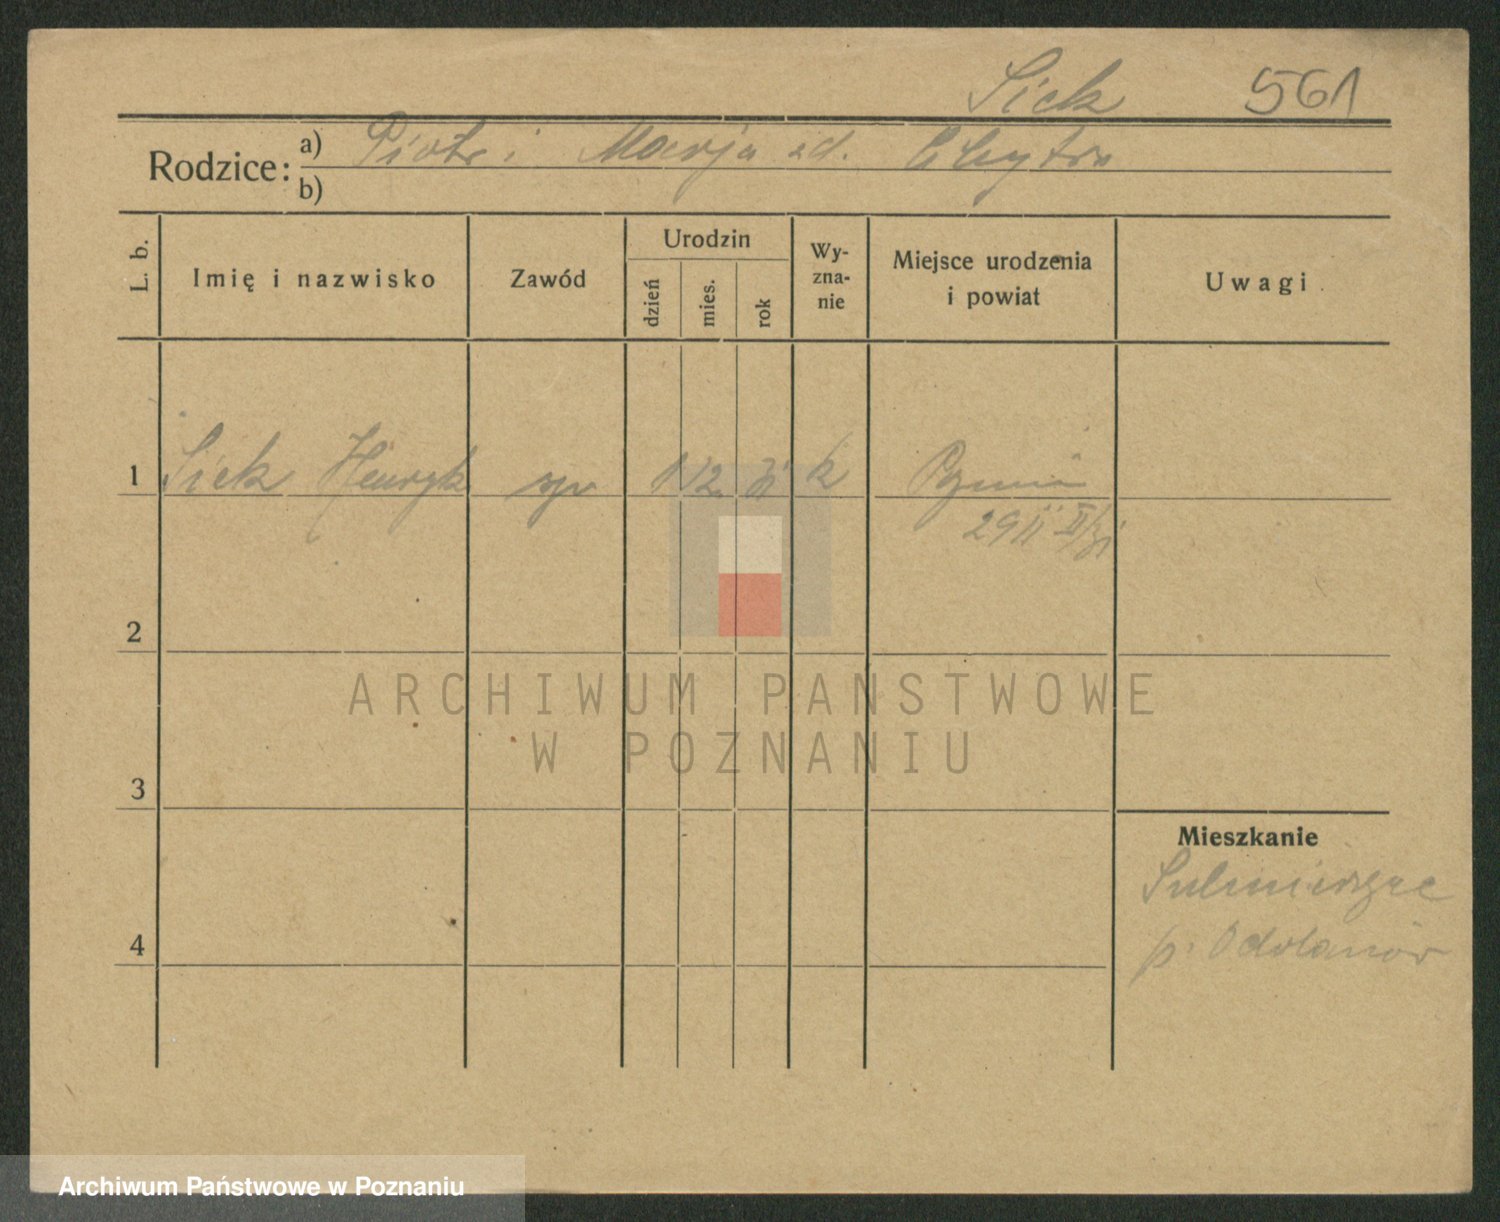 Siek 561
Rodzice: a) Piotr i Marja zd. Chytra
b)
L. b.
Imię i nazwisko
Zawód
Urodzin
dzień
mies.
rok
Wy-
zna-
nie
Miejsce urodzenia
i powiat
Uwagi
1 Siek Henryk syn 1 12 31 k
29 II
2
ARCHIWUM PAŃSTWOWE
W POZNANIU
3
Mieszkanie
Sulmierzyce
p. Odolanów
4
Archiwum Państwowe w Poznaniu